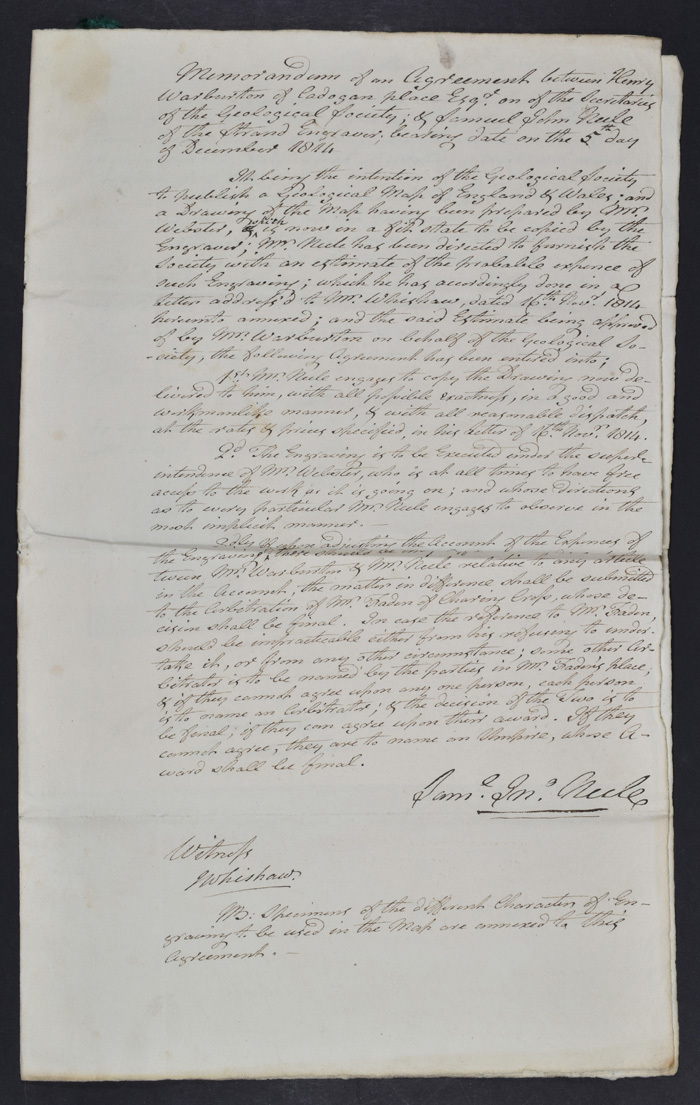 Memorandum of an Agreement between Henry
Warburton of Cadogan place Esqr. on of the Secretaries
of the Geological Society; & Samuel John Neele
of the Strand Engraver; bearing date on the 5th day
of December 1814
It being the intention of the Geological Society
to publish a Geological Map of England & Wales; and
a Drawing of the Map having been prepared by Mr.
Webster, which is now in a fit state to be copied by the
Engraver; Mr. Neele has been directed to furnish the
Society with an estimate of the probable expence of
such Engraving; which he has accordingly done in a
letter address'd to Mr. Whishaw, dated 16th Novr. 1814
hereunto annexed; and the said Estimate being approved
of by Mr. Warburton on behalf of the Geological So-
-ciety, the following Agreement has been entered into;
1st Mr. Neele engages to copy the Drawing now de-
livered to him, with all possible exactness, in a good and
workmanlike manner, & with all reasonable dispatch,
at the rates & prices specified, in his letter of 16th Novr. 1814.
2d. The Engraving is to be Executed under the super-
intendence of Mr. Webster, who is at all times to have free
access to the work as it is going on; and whose directions
as to every particular Mr. Neele engages to observe in the
most implicit manner. —
3dly If when adjusting the Account of the Expences of
the Engraving there should be any
tween Mr. Warburton & Mr. Neele relative to any article
in the Account, the matter in difference shall be submitted
to the Arbitration of Mr. Faden of Charing Cross, whose de-
cision shall be final. In case the reference to Mr. Faden,
should be impracticable either from his refusing to under-
take it, or from any other circumstance; some other Ar-
bitrator is to be named by the parties in Mr. Faden's place,
& if they cannot agree upon any one person, each person
is to name an Arbitrator; & the decision of the Two is to
be final; if they can agree upon their award. If they
cannot agree, they are to name an Umpire, whose A-
ward shall be final.
Saml. Jno. Neele
Witness
J Whishaw.
NB: Specimens of the different Character of En-
graving to be used in the Map are annexed to this
Agreement. —